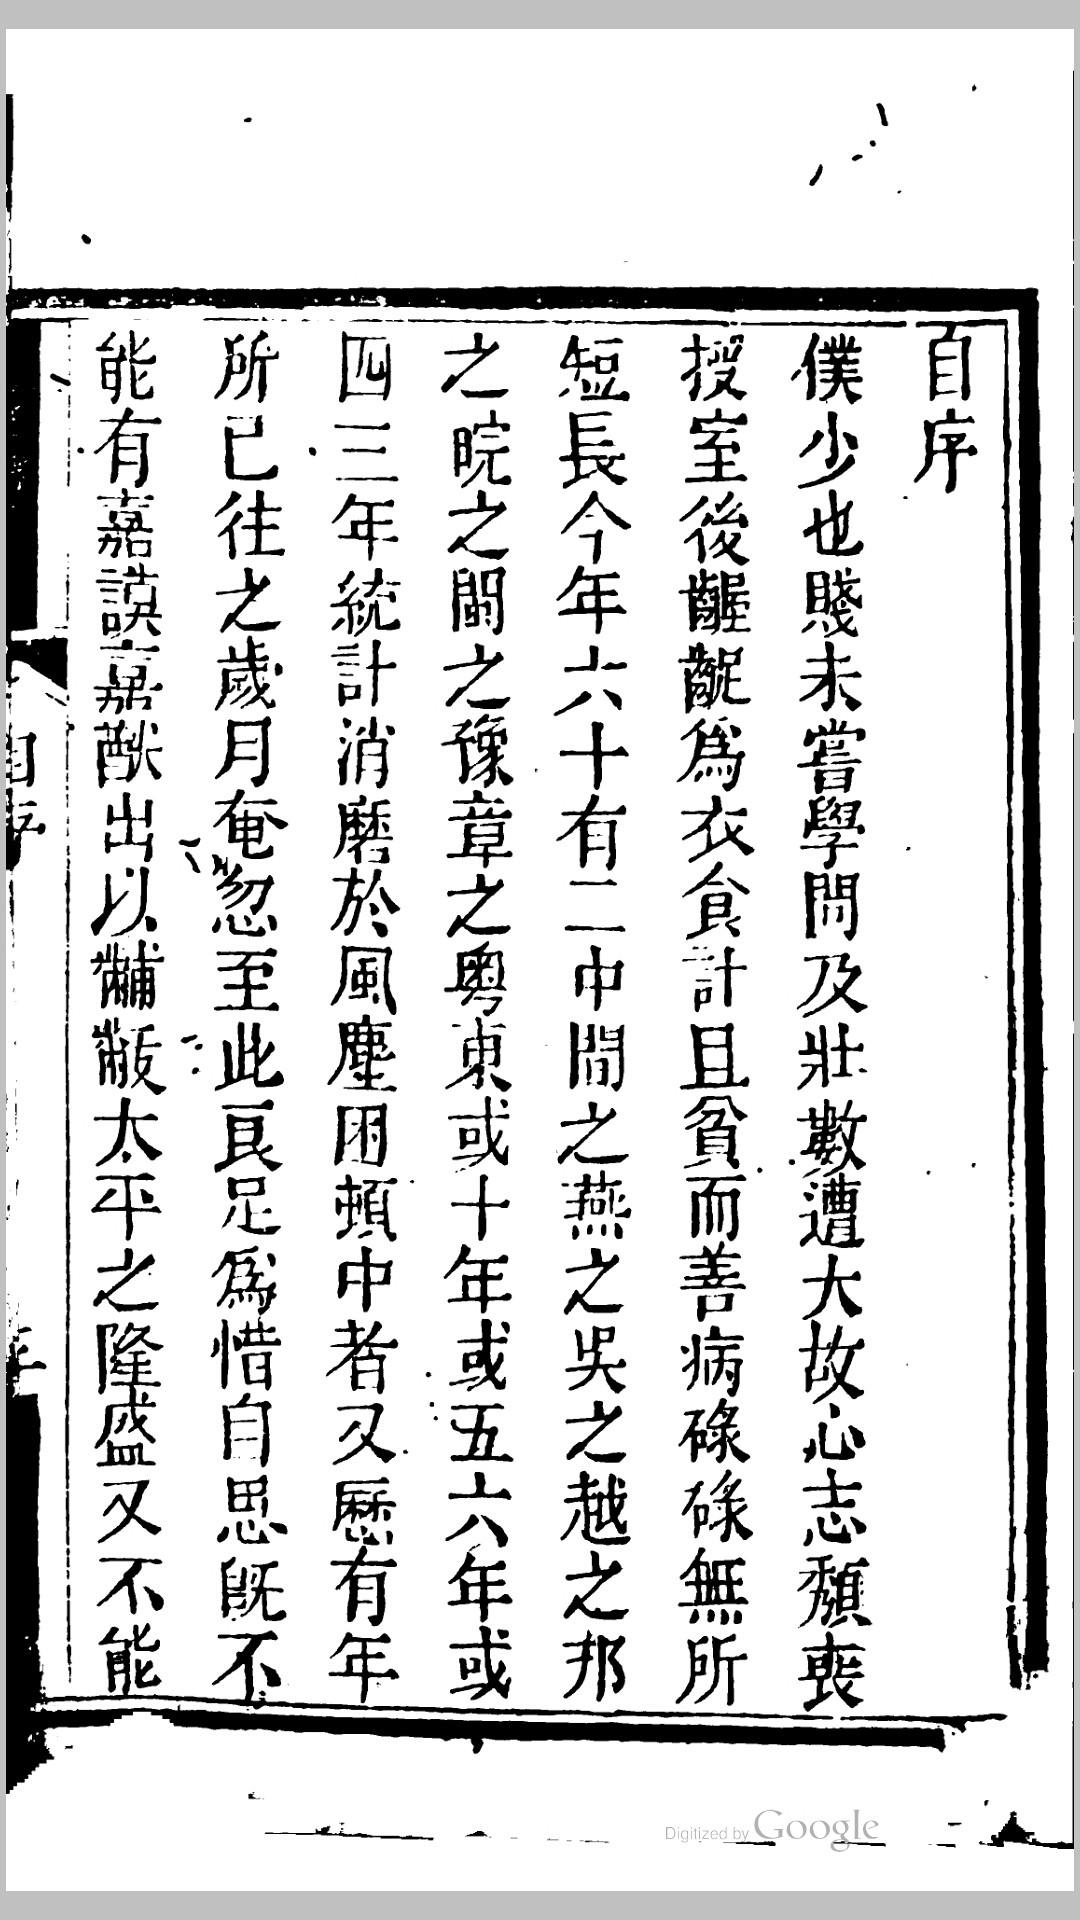 自序
僕少也賤未嘗學問及壯數遭大故心志頽喪
授室後齷齪爲衣食計且貧而善病碌碌無所
短長今年六十有二中間之燕之吳之越之邗
之晥之閩之豫章之粵東或十年或五六年或
四三年統計消磨於風塵困頓中者又歷有年
所已往之歲月奄忽至此良足爲惜自思既不
能有嘉謨嘉猷出以黼黻太平之隆盛又不能
自序
Digitized by Google